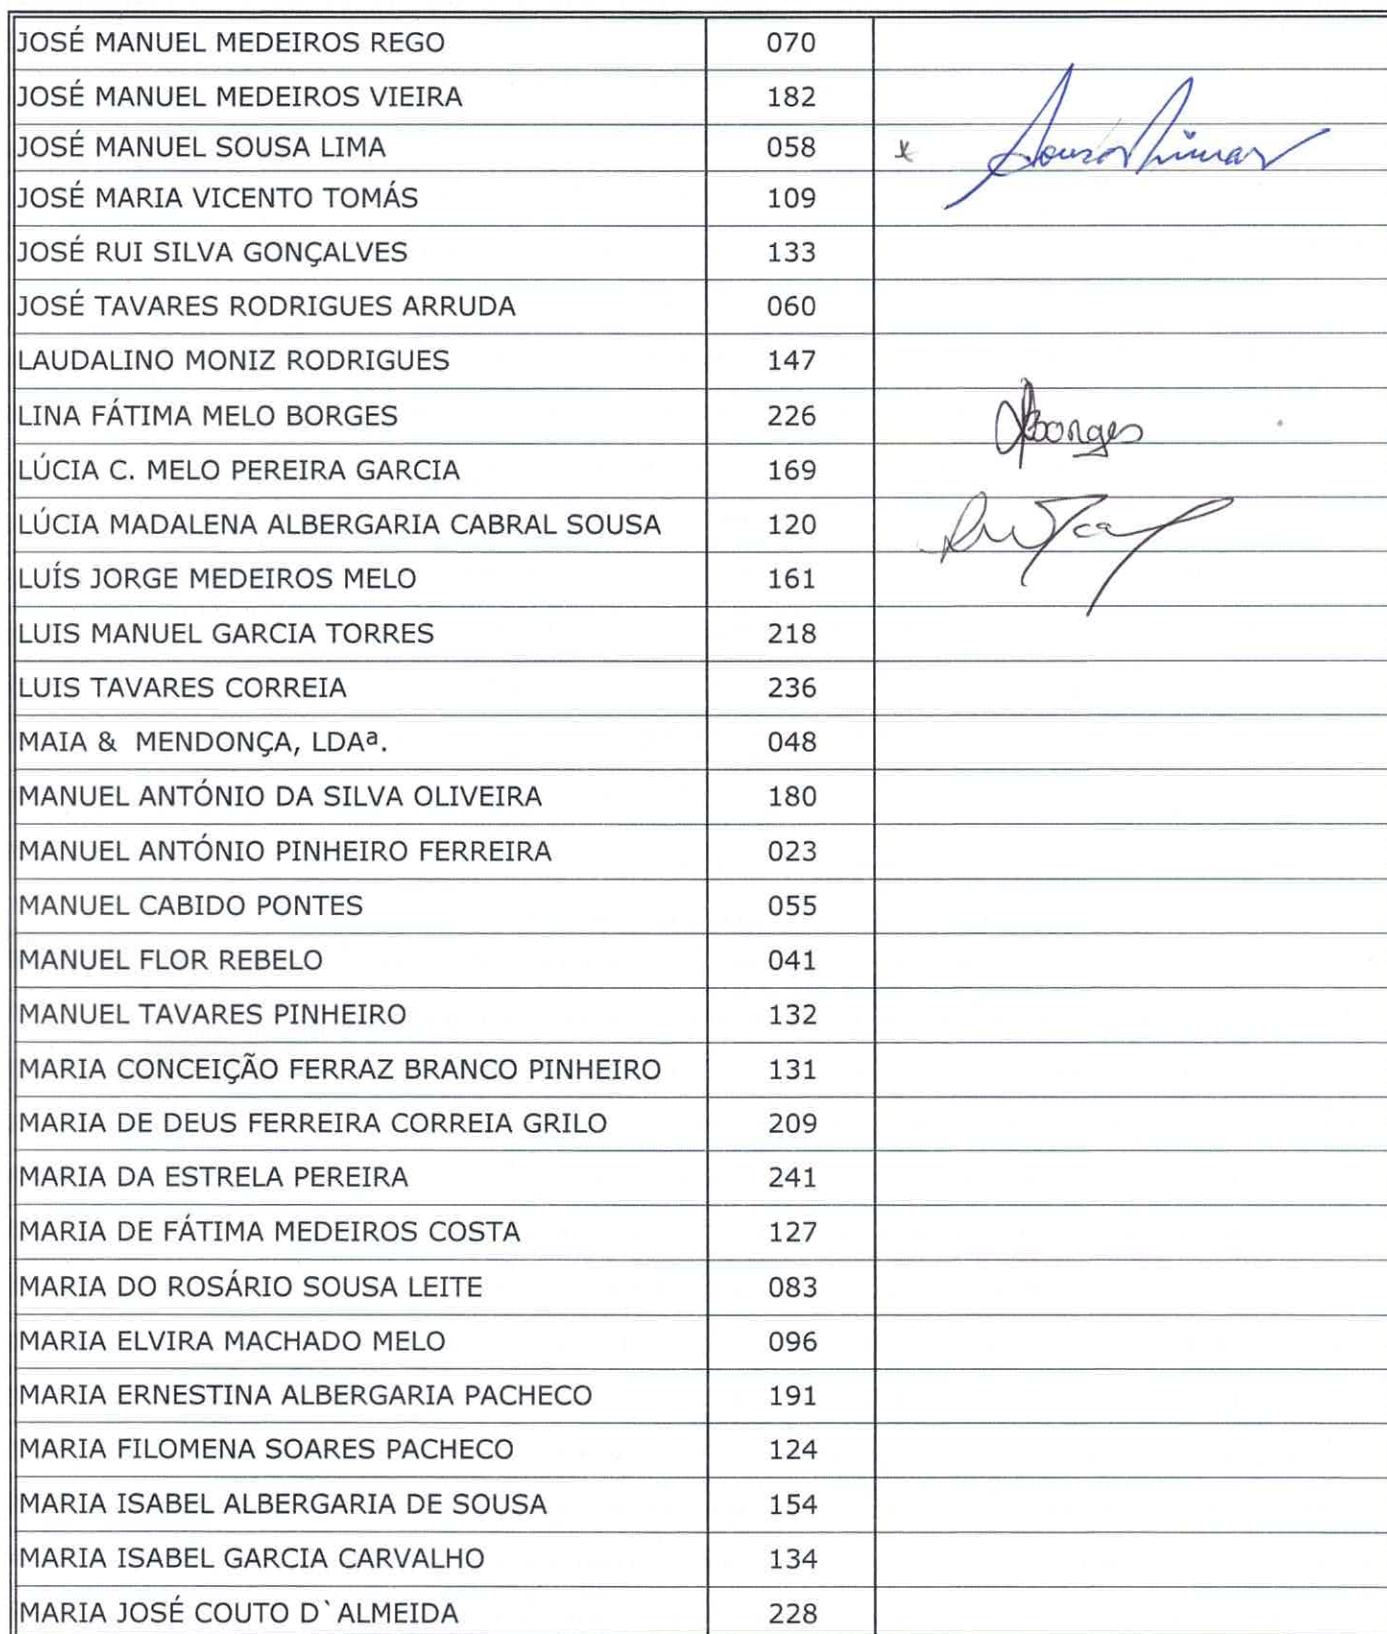 JOSÉ MANUEL MEDEIROS REGO 070
JOSÉ MANUEL MEDEIROS VIEIRA 182
JOSÉ MANUEL SOUSA LIMA 058 x Sousa Lima
JOSÉ MARIA VICENTO TOMÁS 109
JOSÉ RUI SILVA GONÇALVES 133
JOSÉ TAVARES RODRIGUES ARRUDA 060
LAUDALINO MONIZ RODRIGUES 147
LINA FÁTIMA MELO BORGES 226 Borges
LÚCIA C. MELO PEREIRA GARCIA 169
LÚCIA MADALENA ALBERGARIA CABRAL SOUSA 120
LUÍS JORGE MEDEIROS MELO 161
LUIS MANUEL GARCIA TORRES 218
LUIS TAVARES CORREIA 236
MAIA & MENDONÇA, LDAª. 048
MANUEL ANTÓNIO DA SILVA OLIVEIRA 180
MANUEL ANTÓNIO PINHEIRO FERREIRA 023
MANUEL CABIDO PONTES 055
MANUEL FLOR REBELO 041
MANUEL TAVARES PINHEIRO 132
MARIA CONCEIÇÃO FERRAZ BRANCO PINHEIRO 131
MARIA DE DEUS FERREIRA CORREIA GRILO 209
MARIA DA ESTRELA PEREIRA 241
MARIA DE FÁTIMA MEDEIROS COSTA 127
MARIA DO ROSÁRIO SOUSA LEITE 083
MARIA ELVIRA MACHADO MELO 096
MARIA ERNESTINA ALBERGARIA PACHECO 191
MARIA FILOMENA SOARES PACHECO 124
MARIA ISABEL ALBERGARIA DE SOUSA 154
MARIA ISABEL GARCIA CARVALHO 134
MARIA JOSÉ COUTO D`ALMEIDA 228